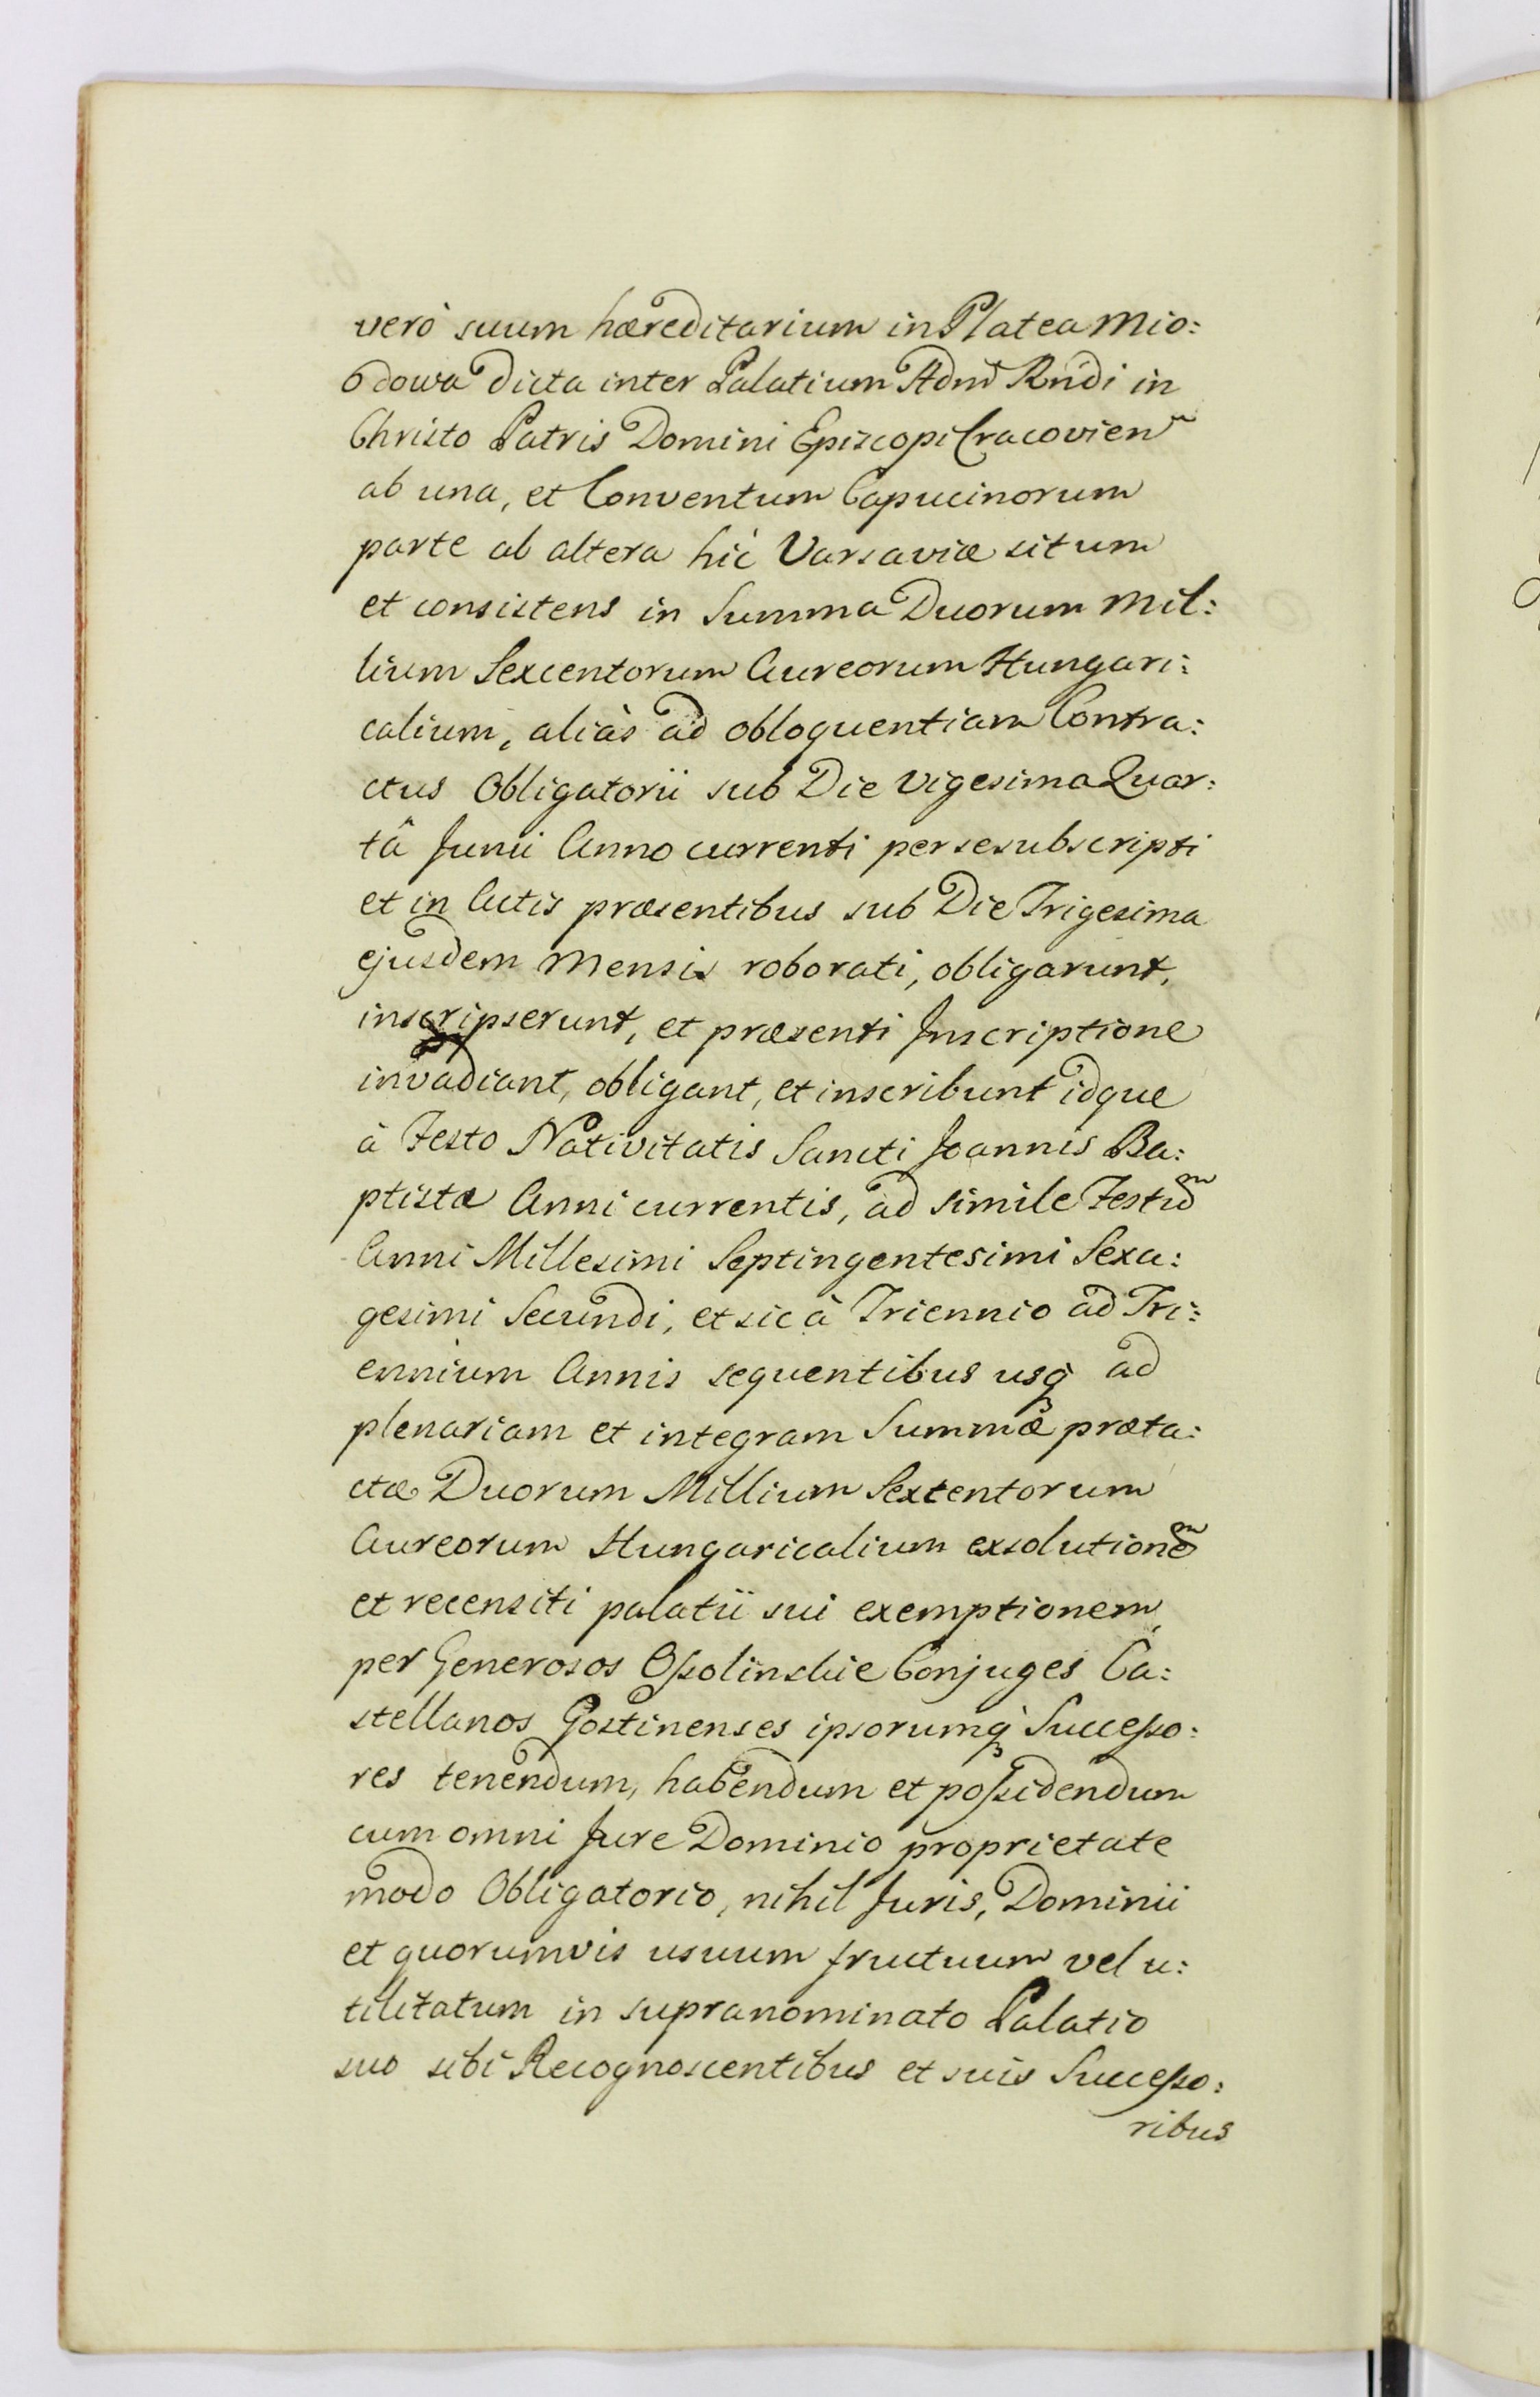 verò suum hæreditarium in Platea Mio:
odowa dicta inter Palatium Adm̃ Rñdi in
Christo Patris Domini Episcopi Cracovieñ
ab una, et Conventum Capucinorum
parte ab altera hic Varsaviæ situm
et consistens in Summa Duorum Mil:
lium Sexcentorum Aureorum Hungari:
calium, aliàs ad obloquentiam Contra:
ctus Obligatorii sub Die Vigesima Quar:
tâ Junii Anno currenti per se subscripti
et in Actis præsentibus sub Die Trigesima
ejusdem Mensis roborati, obligarunt,
inscripserunt, et præsenti Inscriptione
invadiant, obligant, et inscribunt idque
à Festo Nativitatis Sancti Joannis Ba:
ptistæ Anni currentis, ad simile Festũ
Anni Millesimi Septingentesimi Sexa:
gesimi Secundi, et sic à Triennio ad Tri:
ennium Annis sequentibus usq̃ ad
plenariam et integram Summæ præta:
ctæ Duorum Millium Sexcentorum
Aureorum Hungaricalium exsolutionẽ
et recensiti palatii sui exemptionem,
per Generosos Ossolinskie Conjuges Ca:
stellanos Gostinenses ipsorumq̃ Successo:
res tenendum, habendum et possidendum
cum omni Jure Dominio proprietate
modo Obligatorio, nihil Juris, Dominii
et quorumvis usuum fructuum vel u:
tilitatum in supranominato Palatio
suo sibi Recognoscentibus et suis Successo:
ribus